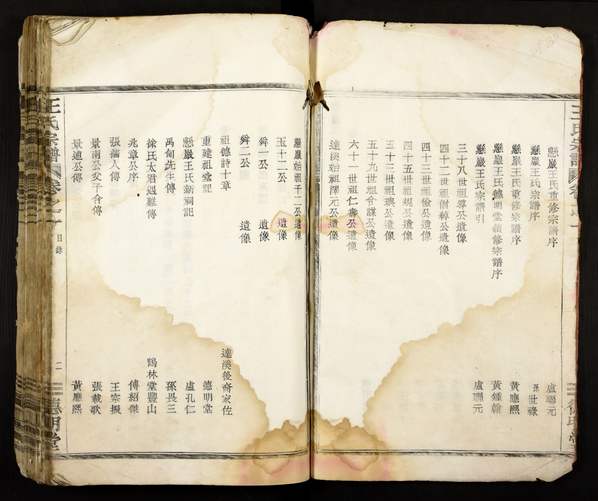 王氏宗譜 卷之一
懸巖王氏重修宗譜序 盧聯元
懸巖王氏宗譜序 世祿
懸巖王氏重修宗譜序 黃應熙
懸巖王氏德明堂續修宗譜序 黃鍾翰
懸巖王氏宗譜引 盧聯元
三十八世祖導公遺像
四十二世祖僧綽公遺像
四十三世祖儉公遺像
四十五世祖規公遺像
五十二世祖璵公遺像
五十九世祖令謀公遺像
六十一世祖仁壽公遺像
達溪始祖澤元公遺像
懸巖始祖千二公遺像
五十二公 遺像
舜一公 遺像
舜二公 遺像
祖德詩十章 達溪後裔家佐
重建祖堂記 德明堂
懸巖王氏新祠記 盧孔仁
禹甸先生傳 孫長三
徐氏太君遇難傳 鶴林堂豐山
兆章公序 傅紹傑
張孺人傳 王宗振
景南公父子合傳 張載歌
景迪公傳 黃應熙
王氏宗譜 卷之一 目錄 二 德明堂